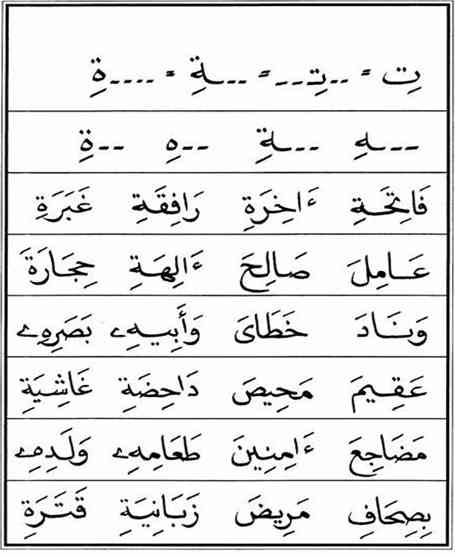 تِ = --تِ-- = ---ـةِ = ----ةِ
---ـهِ ---ـةِ --هِ --ةِ
فَاتِحَـةِ ءَاخِرَةِ رَافِقَةِ غَبَرَةِ
عَـامِلَ صَالِحَ ءَالِهَةِ حِجَارَةَ
وَنَـادَ خَطَاىَ وَأَبِيـهِۦ بَصَرِهِۦ
عَقِـيمَ مَحِيصَ دَاحِضَةِ غَاشِيَةِ
مَضَاجِعَ ءَامِنِينَ طَعَامِهِۦ وَلَدِهِۦ
بِصِحَافِ مَرِيضَ زَبَانِيَةِ قَتَرَةِ